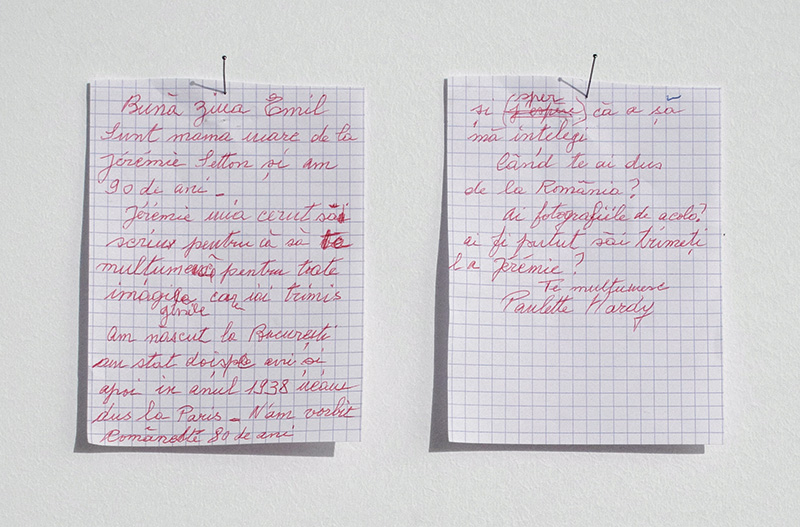 Bună ziua Emil
Sunt mama mare de la
Jérémie Setton și am
90 de ani _
Jérémie mia cerut săi
scriu pentru că să te
multumesc pentru toate
imaginile care iai trimis
Am născut la București
am stat doispe ani și
apoi in anul 1938 neam
dus la Paris _ N'am vorbit
Românește 80 de ani
si (sper) că a să
mă intelegi
Când te ai dus
de la România?
Ai fotografiile de acolo?
ai fi putut săi trimeți
la Jérémie?
Te multumesc
Paulette Hardy